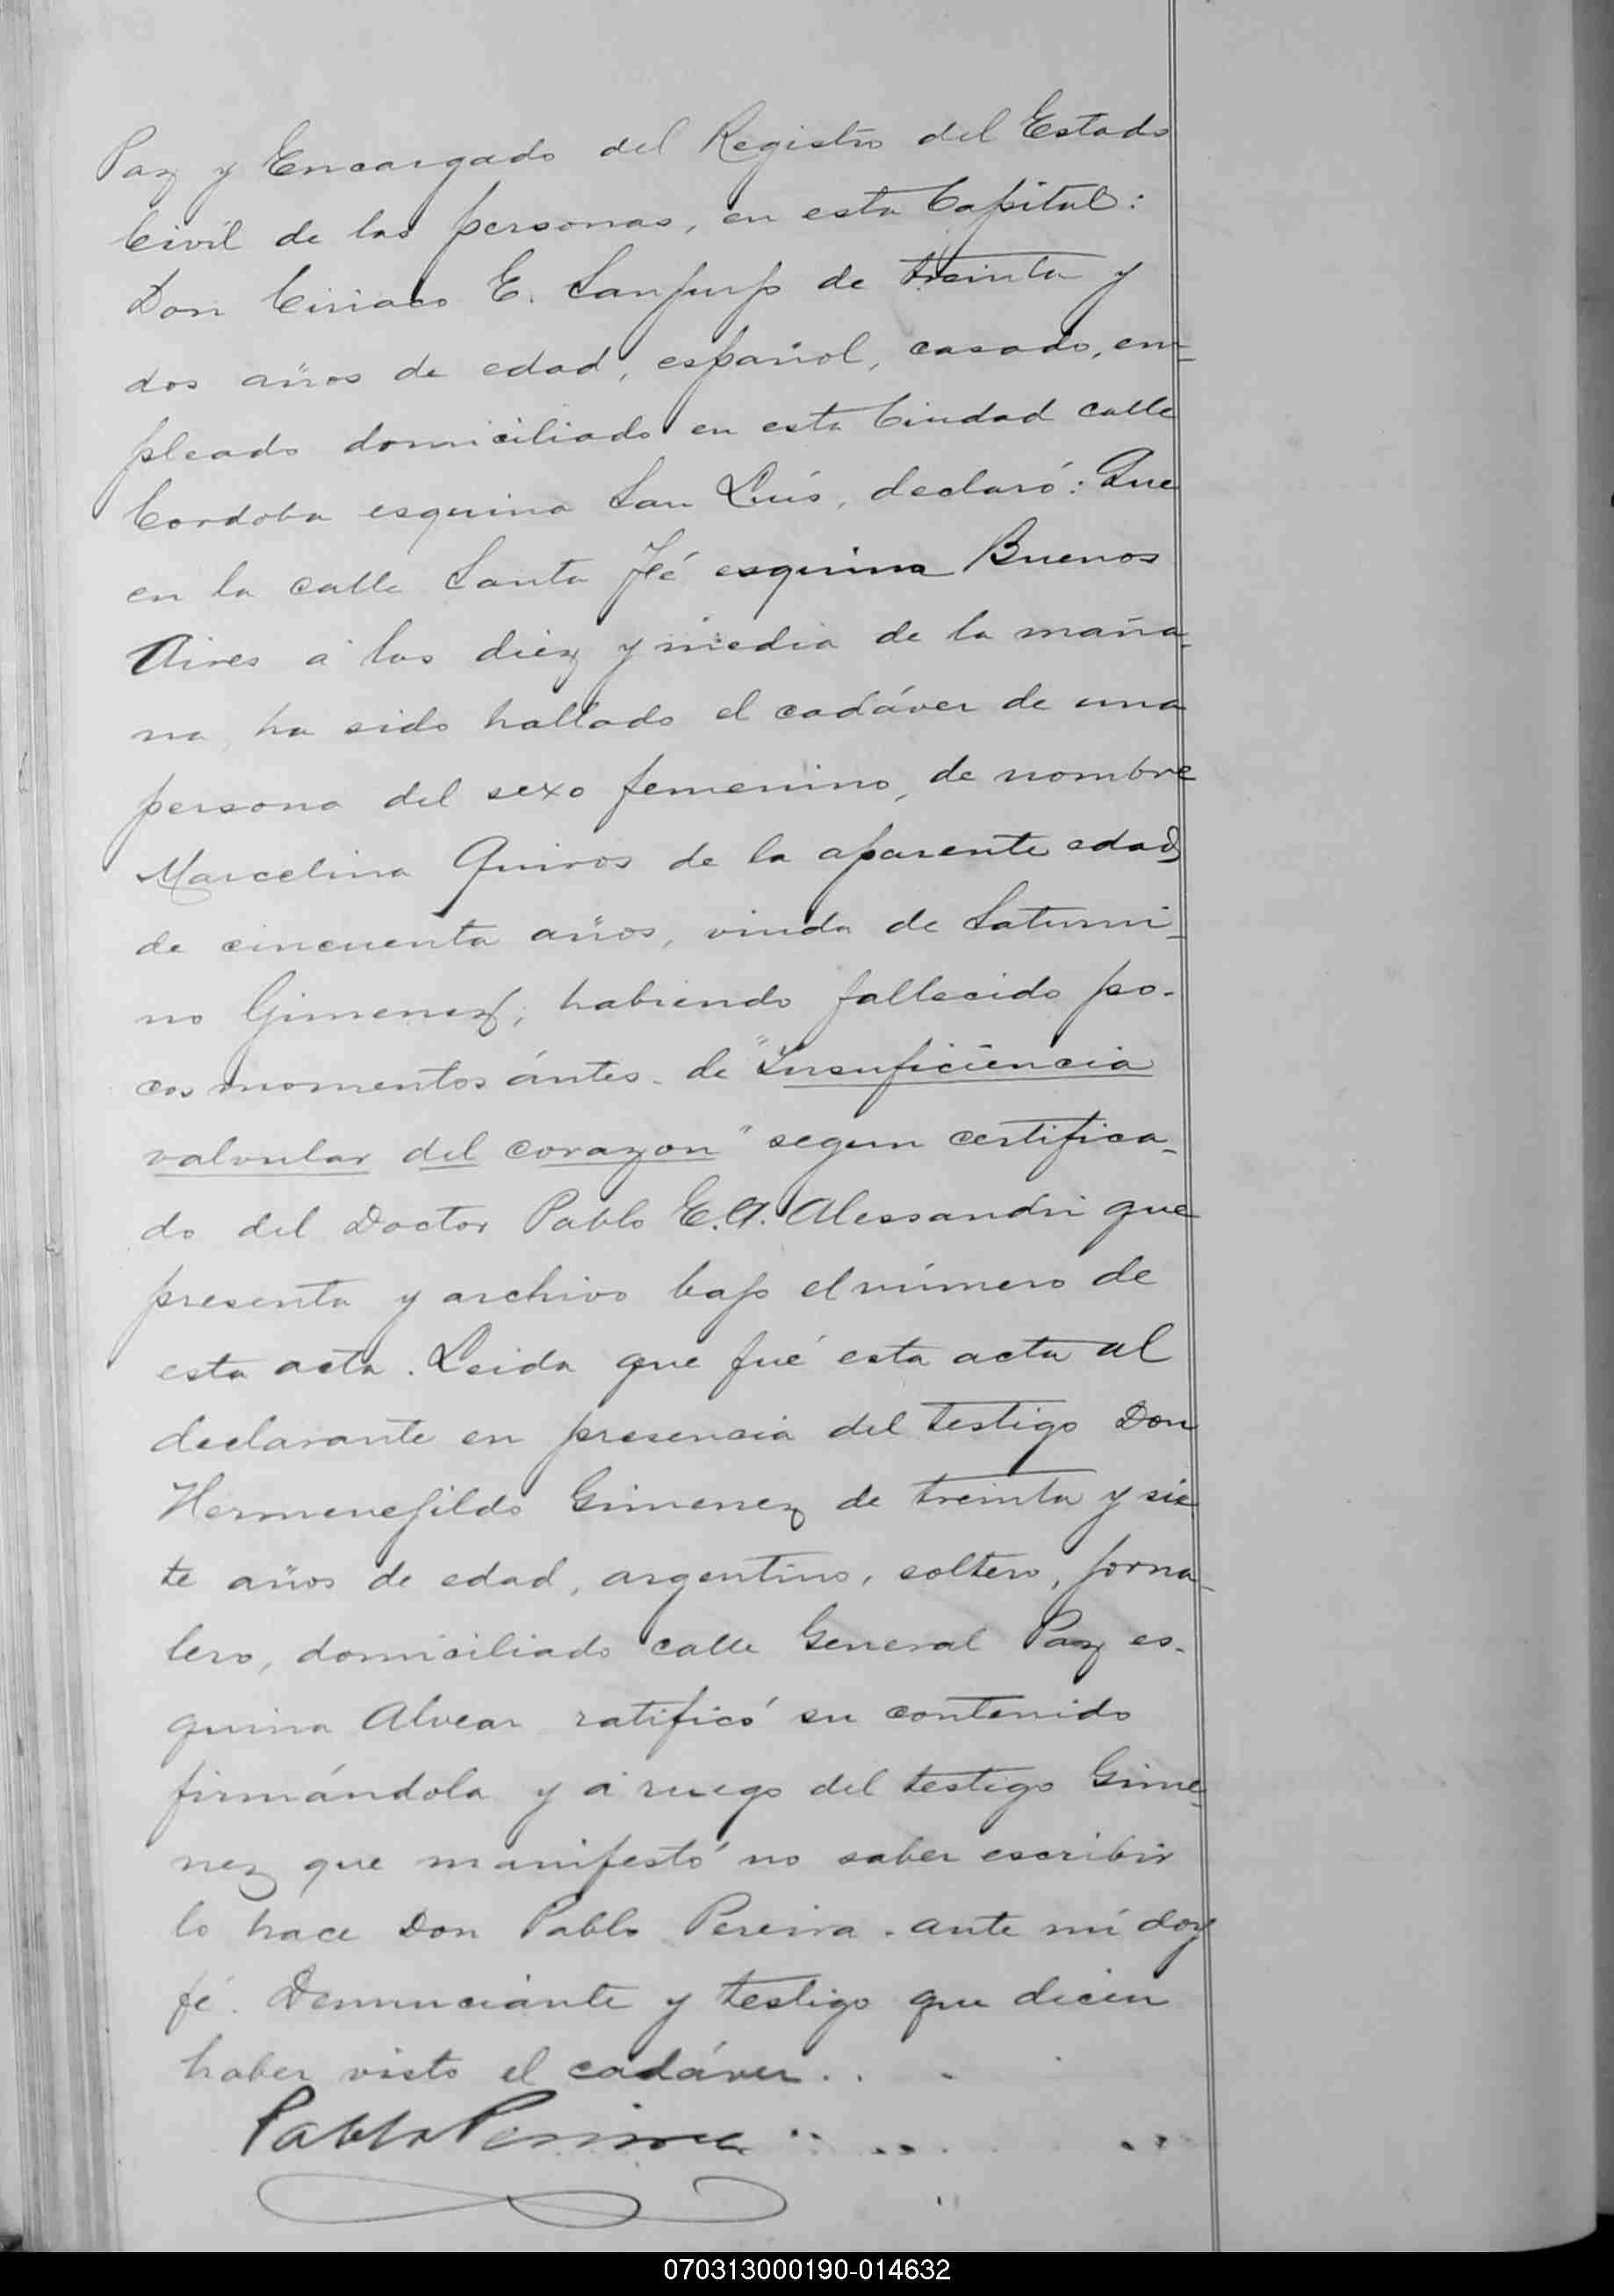 Paz y Encargado del Registro del Estado
Civil de las personas, en esta Capital:
Don Ciriaco E. Sanjurjo de treinta y
dos años de edad, español, casado, em-
pleado domiciliado en esta Ciudad calle
Cordoba esquina San Luis, declaró: Que
en la calle Santa Fé esquina Buenos
Aires á las diez y media de la maña-
na, ha sido hallado el cadáver de una
persona del sexo femenino, de nombre
Marcelina Quiros de la aparente edad
de cincuenta años, viuda de Saturni-
no Gimenez; habiendo fallecido po-
cos momentos ántes de "Insuficiencia
valvular del corazon" segun certifica-
do del Doctor Pablo E. A. Alessandri que
presenta y archivo bajo el número de
esta acta. Leida que fué esta acta al
declarante en presencia del testigo Don
Hermenejildo Gimenez de treinta y sie
te años de edad, argentino, soltero, jorna-
lero, domiciliado calle General Paz es-
quina Alvear ratificó su contenido
firmándola y á ruego del testigo Gime-
nez que manifestó no saber escribir
lo hace Don Pablo Pereira. ante mí doy
fé. Denunciante y testigo que dicen
haber visto el cadáver..
Pablo Pereira
070313000190-014632